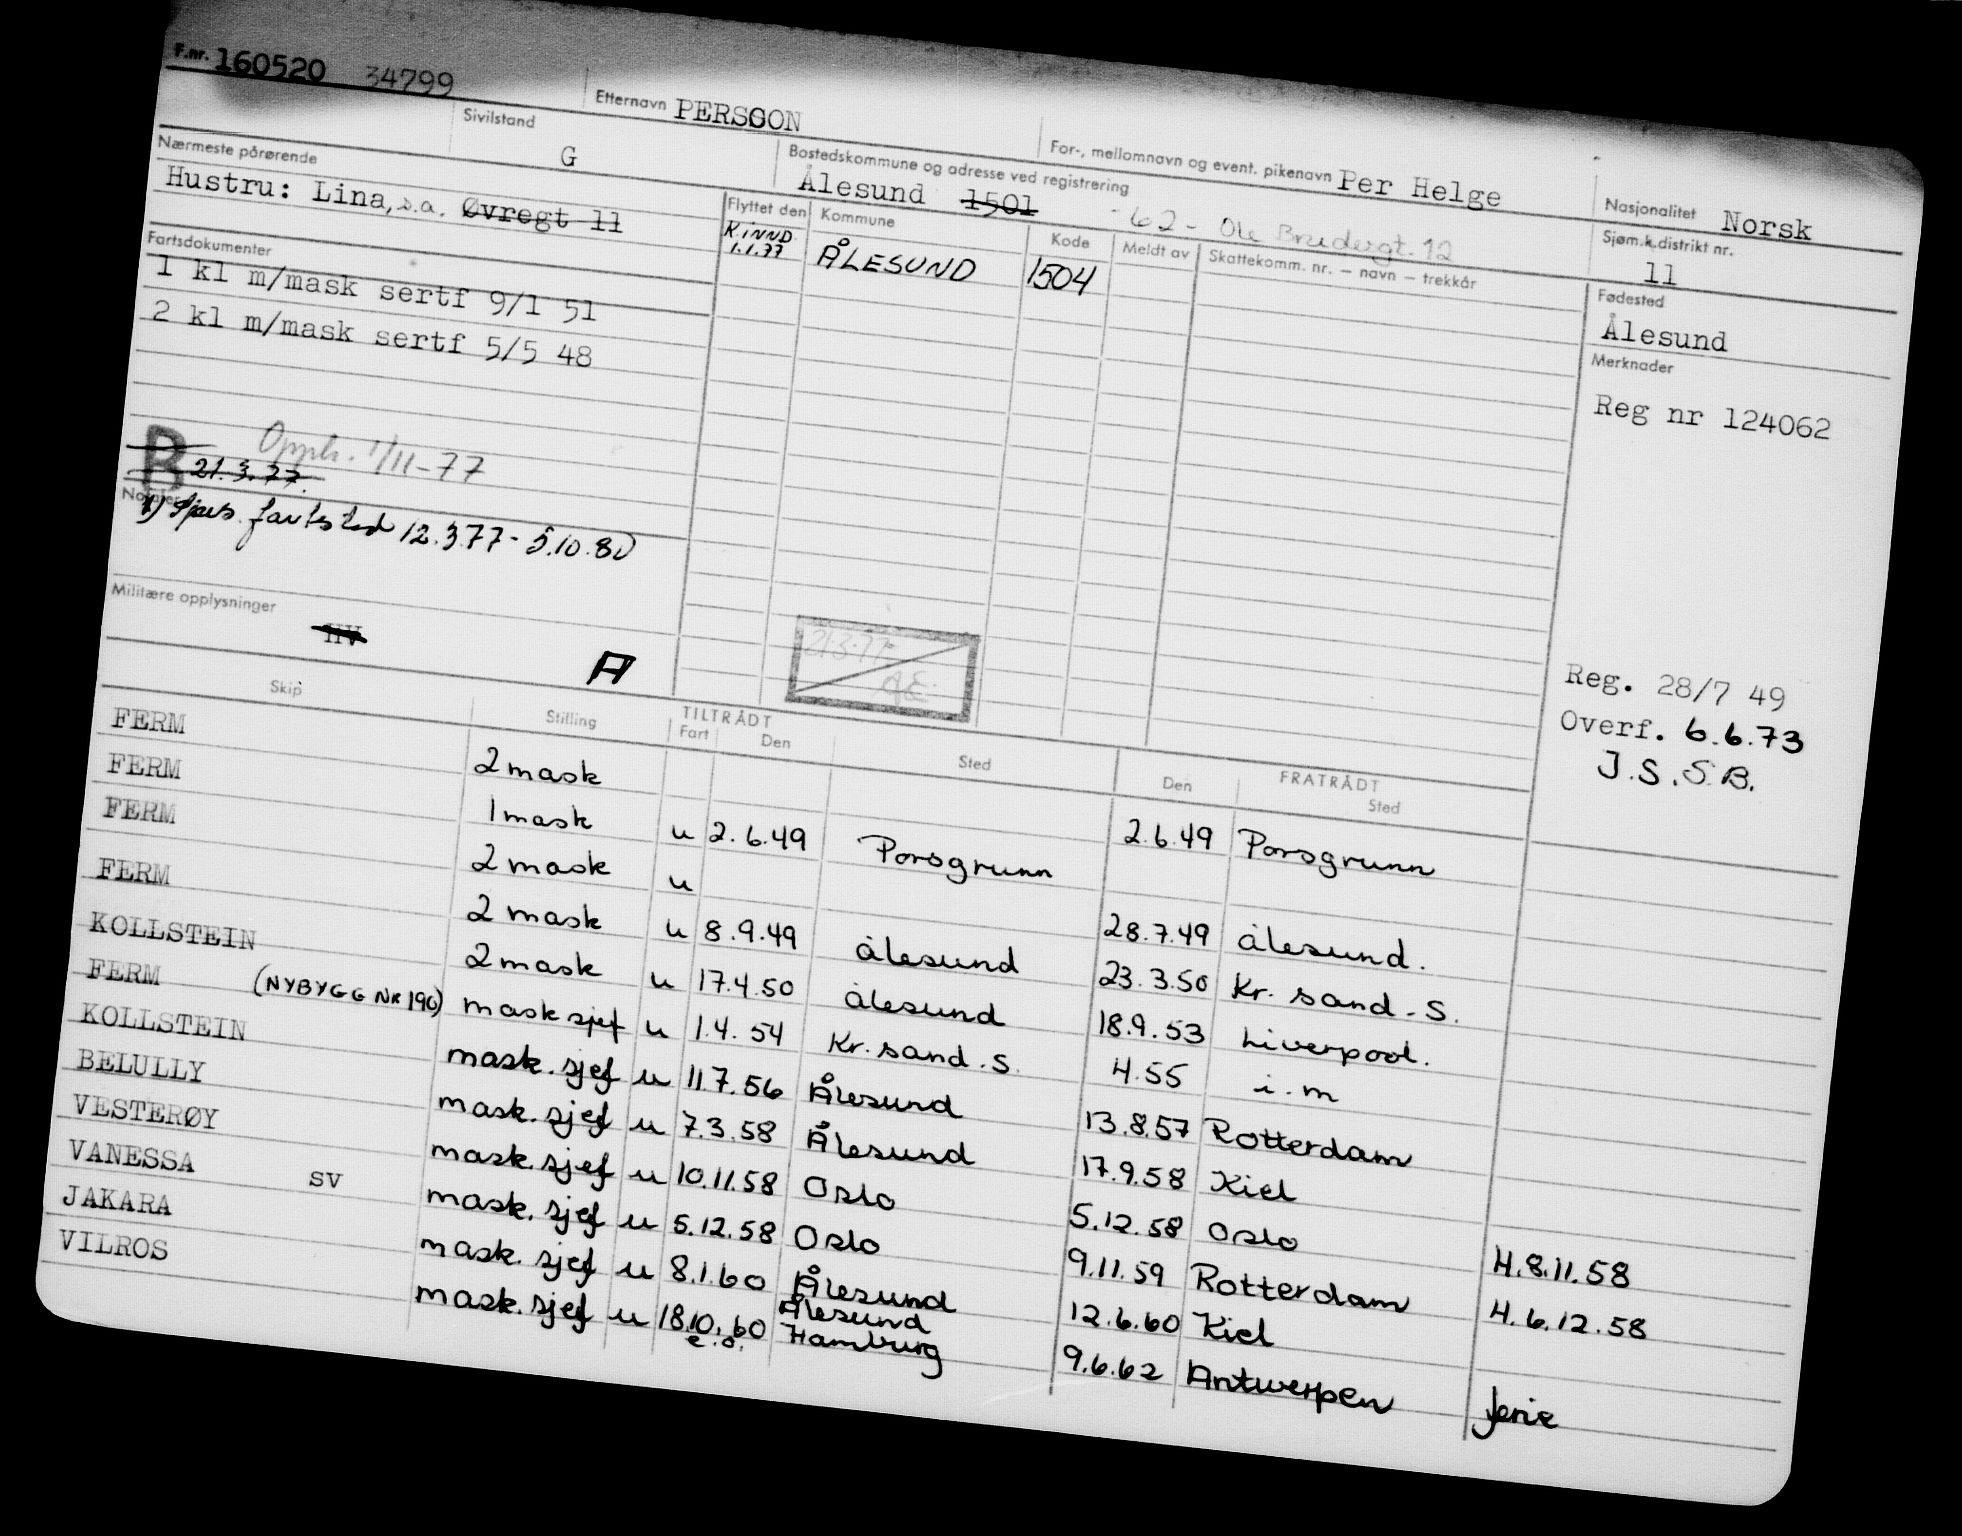 F.nr. 160520 34799
Etternavn PERSSON
For-, mellomnavn og event. pikenavn Per Helge
Nasjonalitet Norsk
Sivilstand G
Bostedskommune og adresse ved registrering
Ålesund 1501 - 62 - Ole Brudergt. 12
Sjøm.k.distrikt nr. 11
Nærmeste pårørende
Hustru: Lina, s.a. Øvregt 11
Flyttet den Kommune Kode Meldt av Skattekomm. nr. – navn – trekkår
K.INND. 1.1.77 ÅLESUND 1504
Fødested
Ålesund
Fartsdokumenter
1 kl m/mask sertf 9/1 51
2 kl m/mask sertf 5/5 48
Merknader
Reg nr 124062
B Opph. 1/11-77
21.3.77.
Notater
fartsted 12.3.77 - 5.10.80
Militære opplysninger
HV
A
21.3.77
Reg. 28/7 49
Overf. 6.6.73
J.S.S.B.
Skip Stilling TILTRÅDT Fart Den Sted FRATRÅDT Den Sted
FERM 2 mask 2.6.49 Porsgrunn
FERM 1 mask u 2.6.49 Porsgrunn
FERM 2 mask u 28.7.49 Ålesund.
FERM 2 mask u 8.9.49 Ålesund 23.3.50 Kr. sand. S.
KOLLSTEIN 2 mask u 17.4.50 Ålesund 18.9.53 Liverpool.
FERM (NYBYGG NR 196) mask sjef u 1.4.54 Kr. sand. S. 4.55 i.m
KOLLSTEIN mask. sjef u 11.7.56 Ålesund 13.8.57 Rotterdam
BELULLY mask. sjef u 7.3.58 Ålesund 17.9.58 Kiel
VESTERØY mask. sjef u 10.11.58 Oslo 5.12.58 Oslo H.8.11.58
VANESSA SV mask. sjef u 5.12.58 Oslo 9.11.59 Rotterdam H.6.12.58
JAKARA mask. sjef u 8.1.60 Ålesund 12.6.60 Kiel
VILROS mask. sjef u 18.10.60 e.o. Ålesund Hamburg 9.6.62 Antwerpen ferie